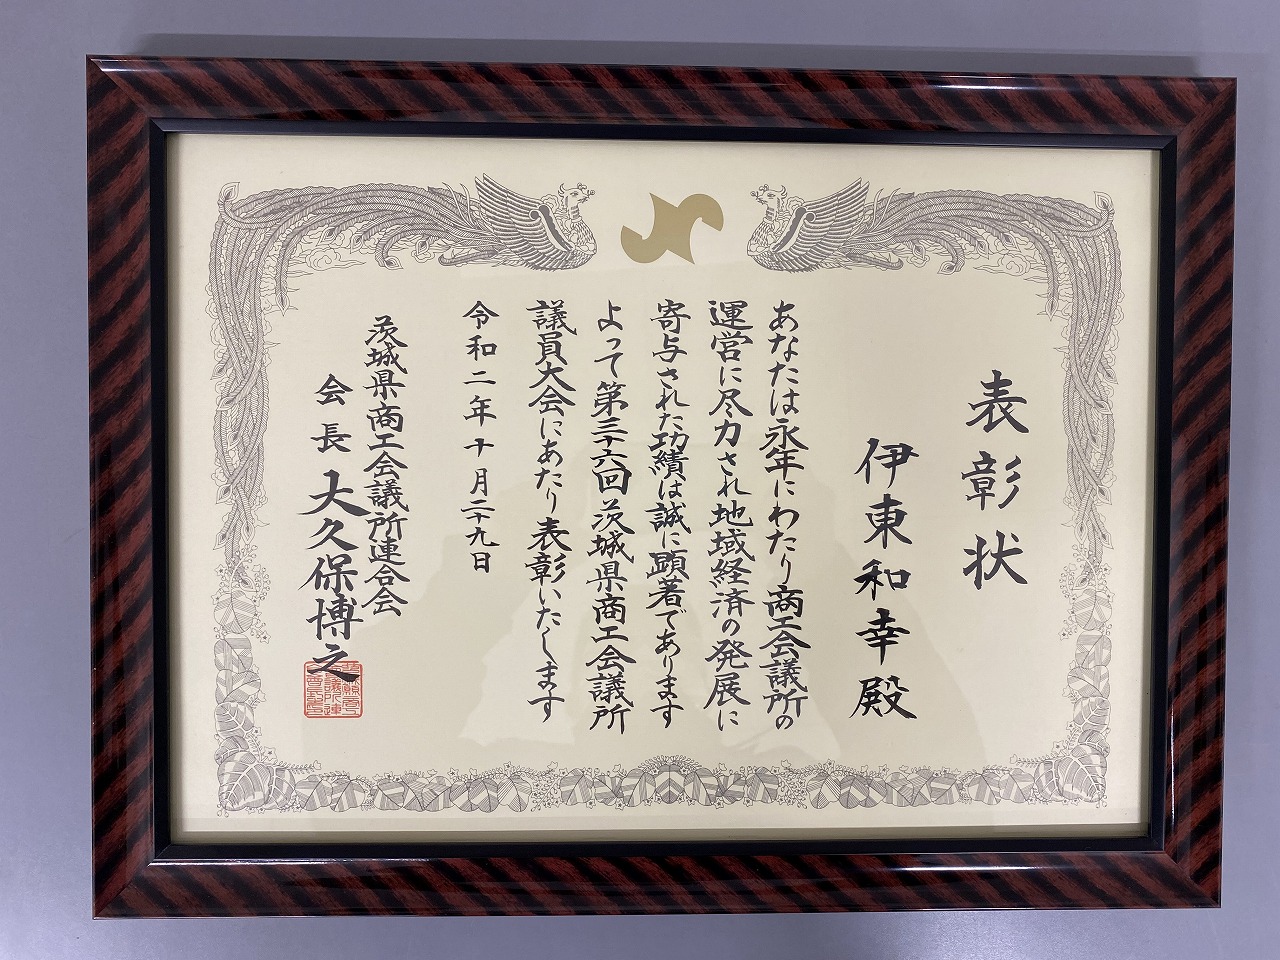 表彰状
伊東和幸殿
あなたは永年にわたり商工会議所の
運営に尽力され地域経済の発展に
寄与された功績は誠に顕著であります
よって第三十六回茨城県商工会議所
議員大会にあたり表彰いたします
令和二年十月二十九日
茨城県商工会議所連合会
会長 大久保博之